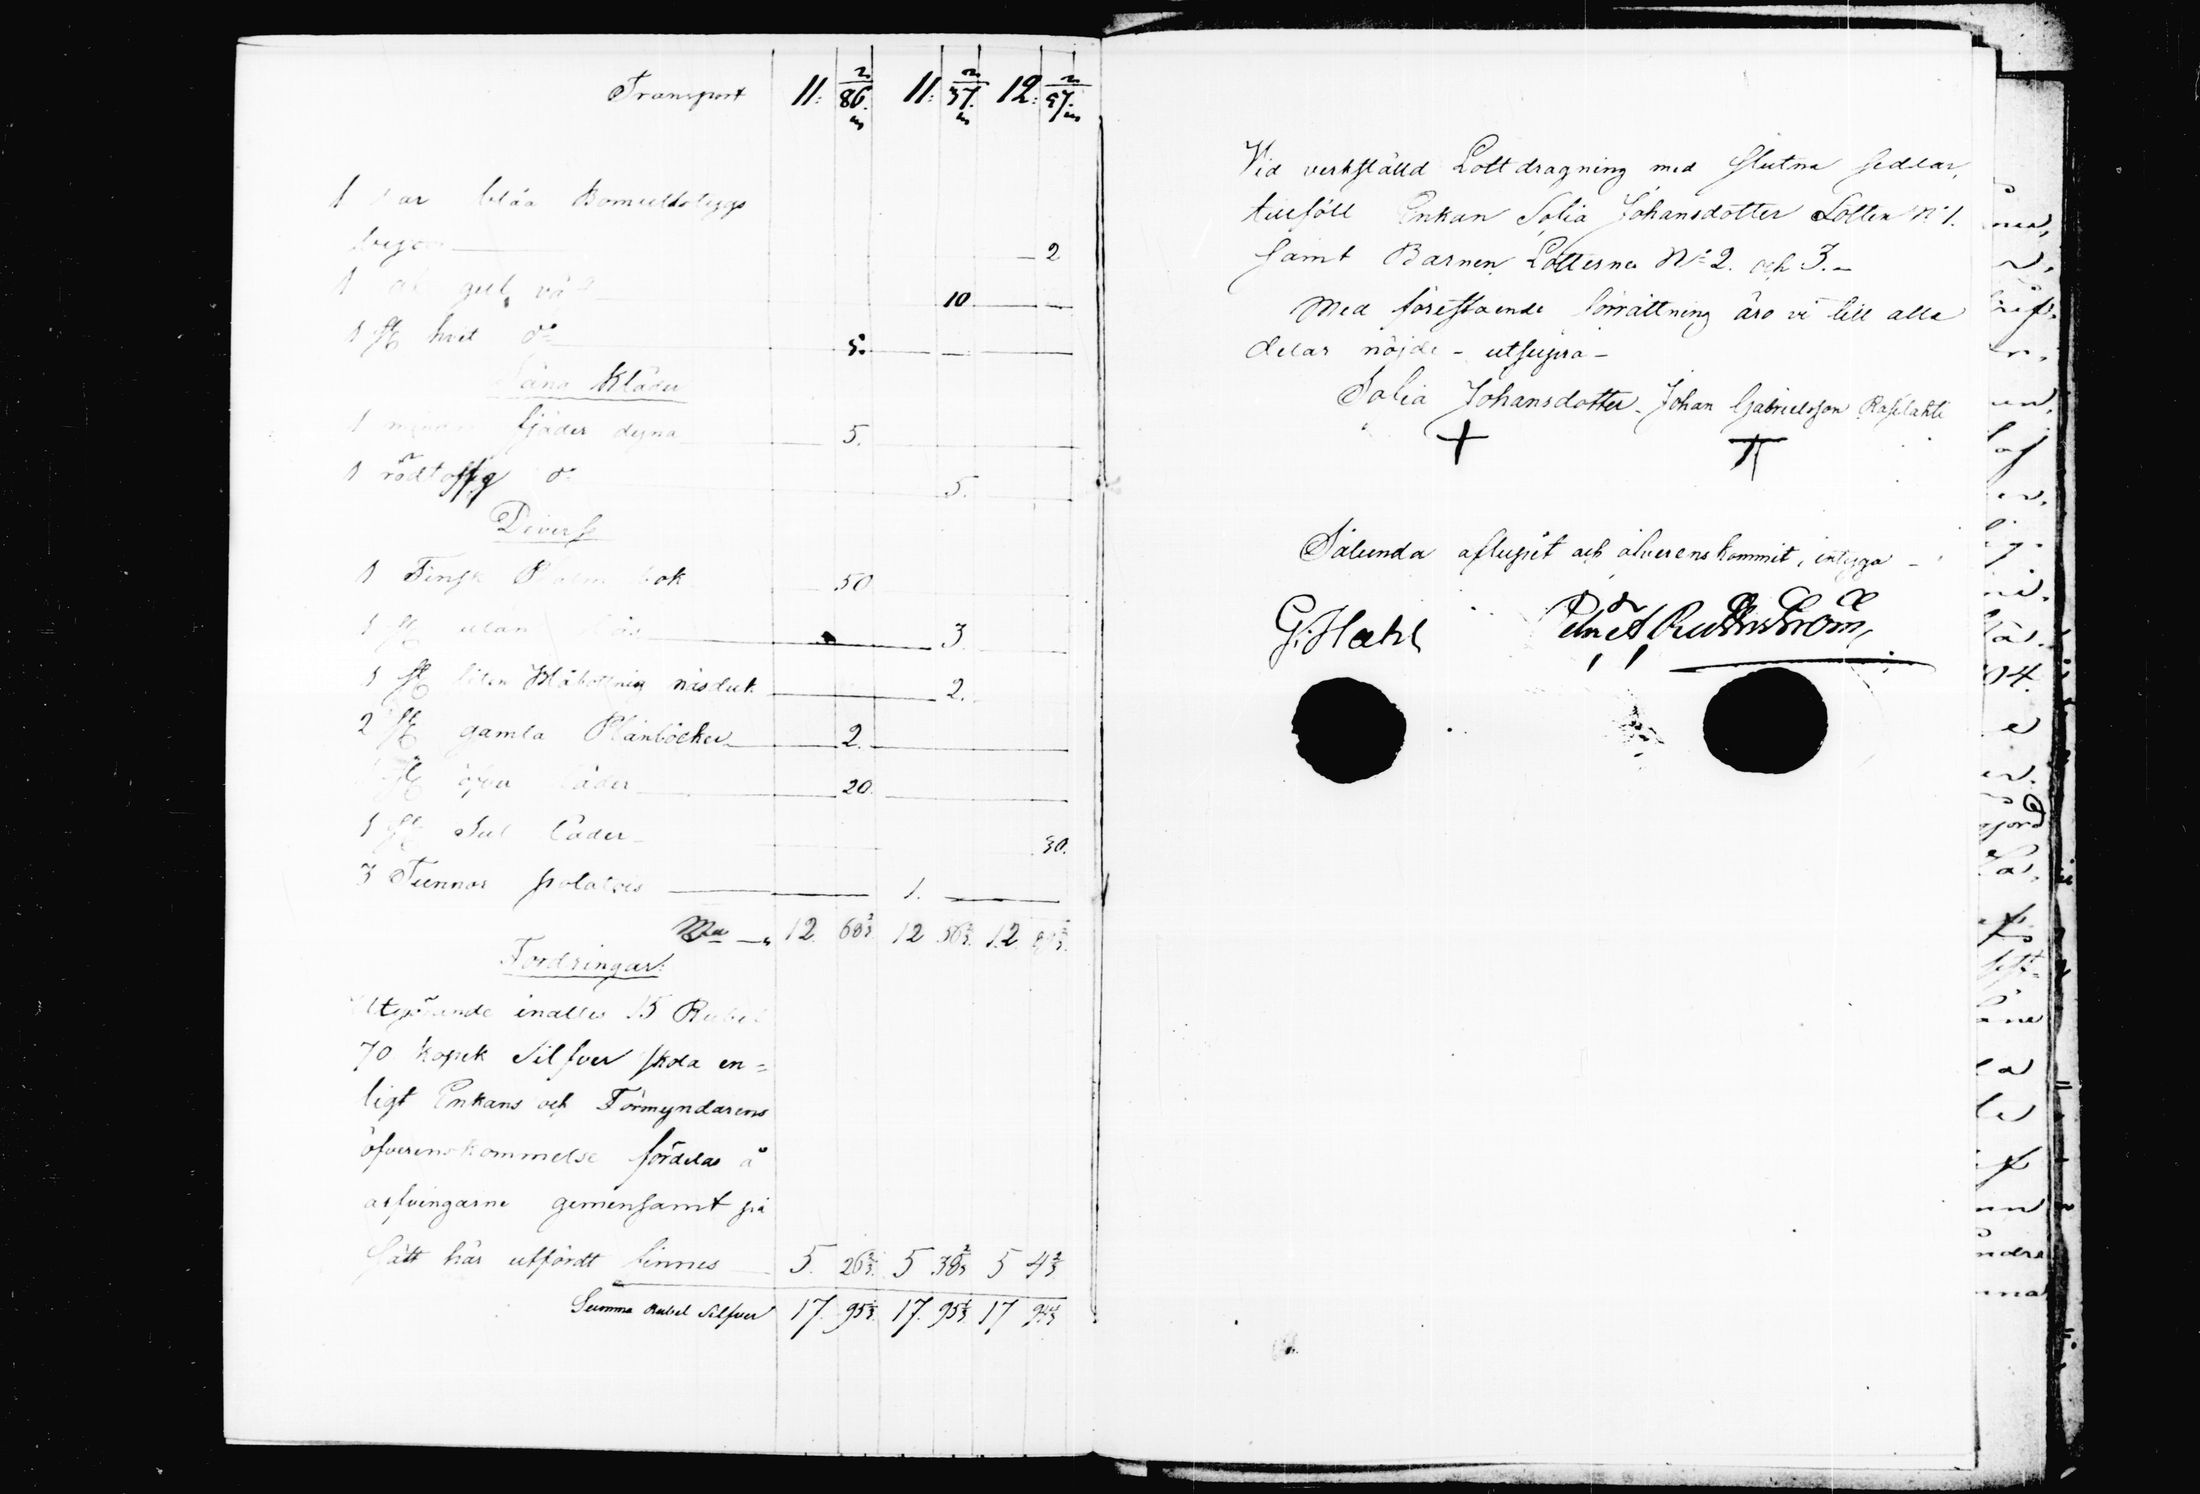 Transport 11: 86 2/3 11: 37 2/3 12: 57 2/3
1 Par blåa Bomullstygs
byxor 2
1 gul 10
1 st hvit d:o 5.
Säng Kläder
1 mindre fjäder dyna 5.
1 rödtoppig d:o 5.
Diverse
1 Finsk Psalm bok 50
1 st utan lås 3.
1 st liten blåbottnig näsduk 2.
2 st gamla Plånböcker 2.
1 st öfver läder 20.
1 st Sul läder 30.
3 Tunnor potatoes 1.
S:a 12. 68 2/3. 12 56 2/3. 12 89 2/3.
Fordringar:
Utgörande inalles 15 Rubel
70 kopek Silfver skola en=
ligt Enkans och Förmyndarens
öfverenskommelse fördelas å
arfvingarne gemensamt på
sätt här utfördt finnes 5. 26 2/3. 5 38 2/3 5 4 2/3
Summa Rubel Silfver 17. 95 1/3. 17. 95 1/3 17 94 1/3
Vid verkställd Lottdragning med slutna sedlar,
tillföll Enkan Sofia Johansdotter Lotten N:o 1.
samt Barnen Lotterna N:o 2. och 3.-
Med förestående förrättning äro vi till alla
delar nöjde - utsupra -
Sofia Johansdotter Johan Gabrielsson Rasilahti
Sålunda aflupit och öfverenskommit, intyga -
G. Hahl